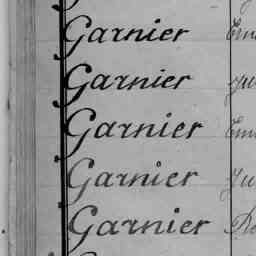 Garnier
Garnier
Garnier
Garnier
Garnier